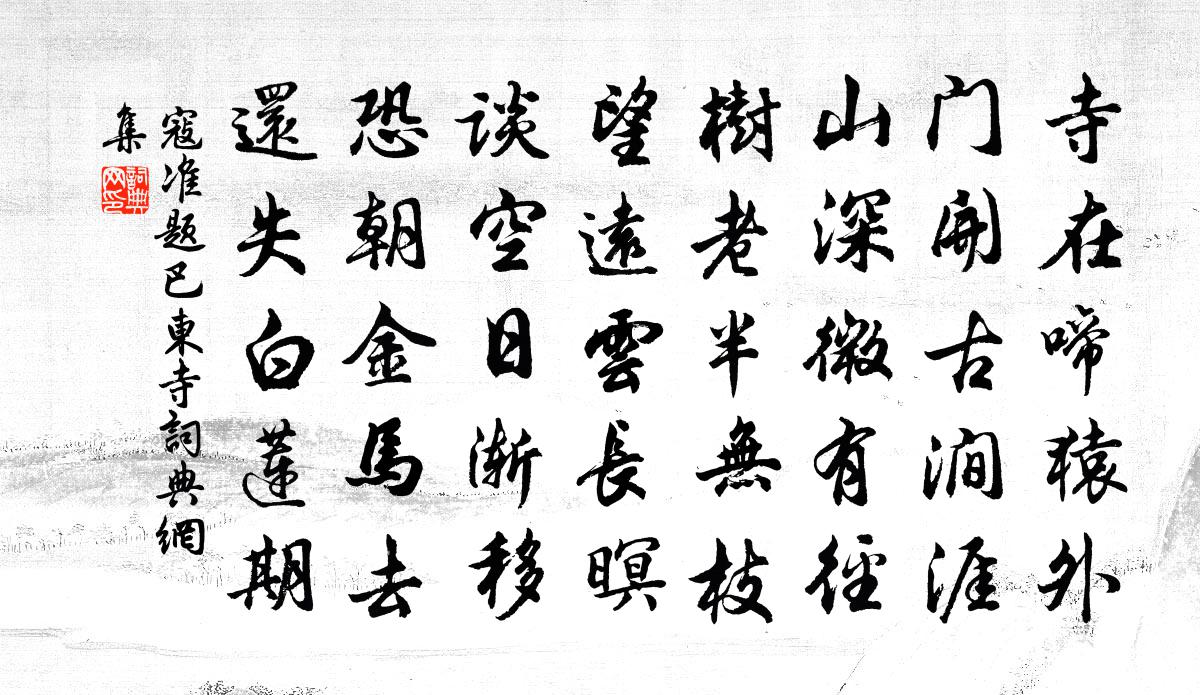 寺在啼猿外
门開古澗涯
山深微有徑
樹老半無枝
望遠雲長暝
談空日漸移
恐朝金馬去
還失白蓮期
寇准题巴東寺詞典網
集
詞典
网印